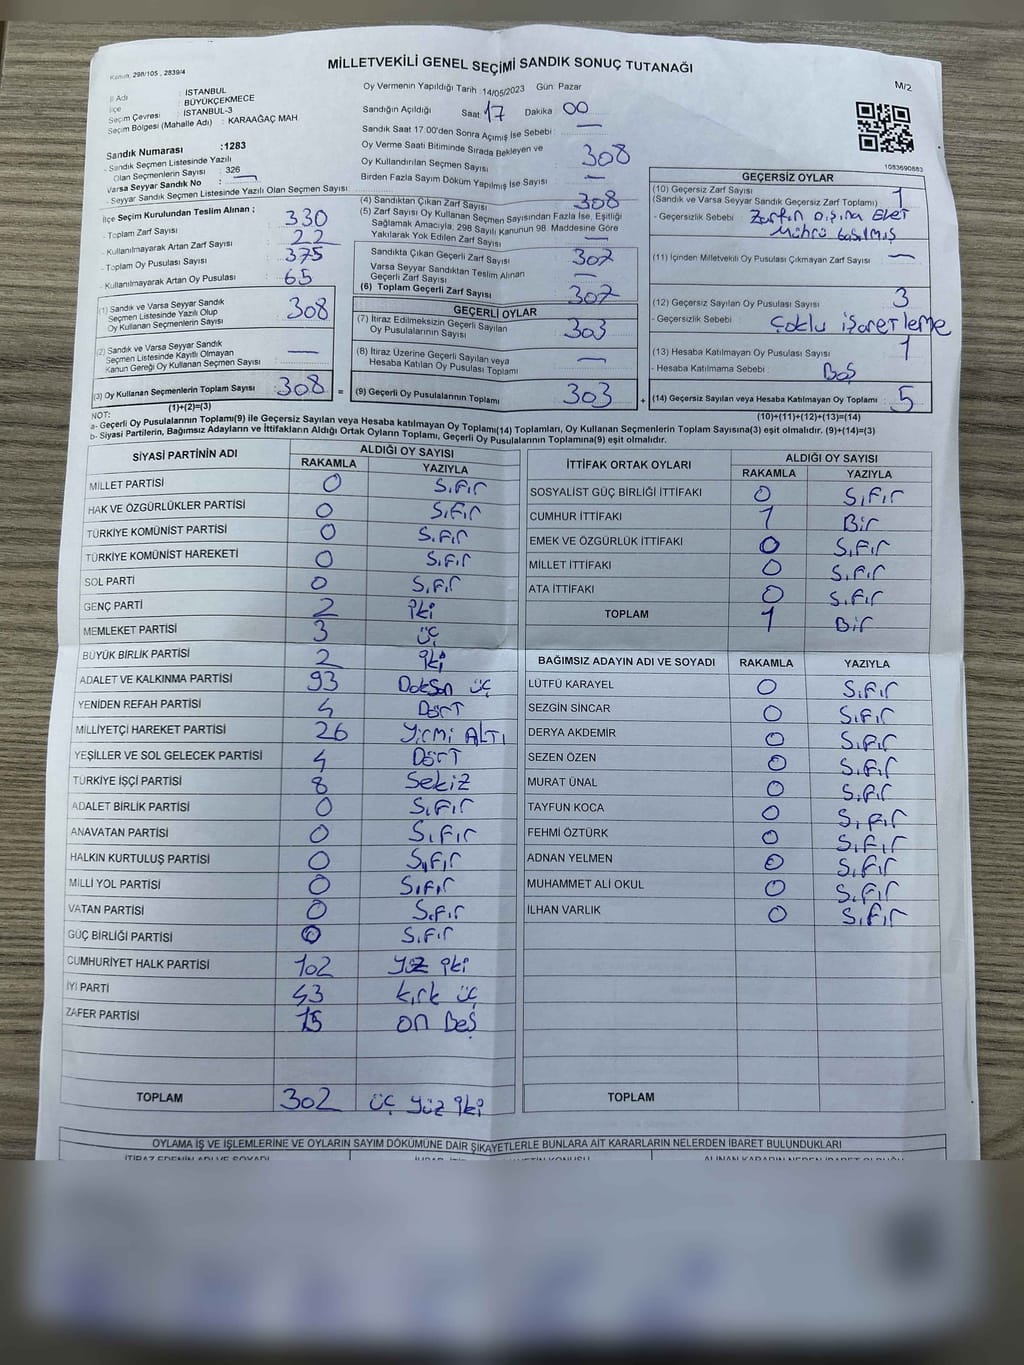 Kanun, 298/105 , 2839/4
MİLLETVEKİLİ GENEL SEÇİMİ SANDIK SONUÇ TUTANAĞI
M/2
İl Adı : İSTANBUL
İlçe : BÜYÜKÇEKMECE
Seçim Çevresi : İSTANBUL-3
Seçim Bölgesi (Mahalle Adı) : KARAAĞAÇ MAH
Oy Vermenin Yapıldığı Tarih :14/05/2023 Gün: Pazar
Sandığın Açıldığı Saat 17 Dakika 00
Sandık Saat 17.00'den Sonra Açımış İse Sebebi : —
Oy Verme Saati Bitiminde Sırada Bekleyen ve
Oy Kullandırılan Seçmen Sayısı 308
Birden Fazla Sayım Döküm Yapılmış İse Sayısı —
1083690883
Sandık Numarası :1283
- Sandık Seçmen Listesinde Yazılı
Olan Seçmenlerin Sayısı : 326
Varsa Seyyar Sandık No : —
- Seyyar Sandık Seçmen Listesinde Yazılı Olan Seçmen Sayısı :
İlçe Seçim Kurulundan Teslim Alınan ;
- Toplam Zarf Sayısı : 330
- Kullanılmayarak Artan Zarf Sayısı : 22
- Toplam Oy Pusulası Sayısı : 375
- Kullanılmayarak Artan Oy Pusulası : 65
(1) Sandık ve Varsa Seyyar Sandık
Seçmen Listesinde Yazılı Olup
Oy Kullanan Seçmenlerin Sayısı : 308
(2) Sandık ve Varsa Seyyar Sandık
Seçmen Listesinde Kayıtlı Olmayan
Kanun Gereği Oy Kullanan Seçmen Sayısı : —
(3) Oy Kullanan Seçmenlerin Toplam Sayısı : 308 =
(1)+(2)=(3)
(4) Sandıktan Çıkan Zarf Sayısı : 308
(5) Zarf Sayısı Oy Kullanan Seçmen Sayısından Fazla İse, Eşitliği
Sağlamak Amacıyla, 298 Sayılı Kanunun 98. Maddesine Göre
Yakılarak Yok Edilen Zarf Sayısı : —
Sandıkta Çıkan Geçerli Zarf Sayısı : 307
Varsa Seyyar Sandıktan Teslim Alınan
Geçerli Zarf Sayısı : —
(6) Toplam Geçerli Zarf Sayısı : 307
GEÇERLİ OYLAR
(7) İtiraz Edilmeksizin Geçerli Sayılan
Oy Pusulalarının Sayısı : 303
(8) İtiraz Üzerine Geçerli Sayılan veya
Hesaba Katılan Oy Pusulası Toplamı : —
(9) Geçerli Oy Pusulalarının Toplamı : 303 +
GEÇERSİZ OYLAR
(10) Geçersiz Zarf Sayısı : 1
(Sandık ve Varsa Seyyar Sandık Geçersiz Zarf Toplamı)
- Geçersizlik Sebebi : Zarfın Dışına Evet
Mührü basılmış
(11) İçinden Milletvekili Oy Pusulası Çıkmayan Zarf Sayısı : —
(12) Geçersiz Sayılan Oy Pusulası Sayısı : 3
- Geçersizlik Sebebi : Çoklu işaretleme
(13) Hesaba Katılmayan Oy Pusulası Sayısı : 1
- Hesaba Katılmama Sebebi : Boş
(14) Geçersiz Sayılan veya Hesaba Katılmayan Oy Toplamı : 5
(10)+(11)+(12)+(13)=(14)
NOT:
a- Geçerli Oy Pusulalarının Toplamı(9) ile Geçersiz Sayılan veya Hesaba Katılmayan Oy Toplamı(14) Toplamları, Oy Kullanan Seçmenlerin Toplam Sayısına(3) eşit olmalıdır. (9)+(14)=(3)
b- Siyasi Partilerin, Bağımsız Adayların ve İttifakların Aldığı Ortak Oyların Toplamı, Geçerli Oy Pusulalarının Toplamına(9) eşit olmalıdır.
SİYASİ PARTİNİN ADI ALDIĞI OY SAYISI
RAKAMLA YAZIYLA
MİLLET PARTİSİ 0 Sıfır
HAK VE ÖZGÜRLÜKLER PARTİSİ 0 Sıfır
TÜRKİYE KOMÜNİST PARTİSİ 0 Sıfır
TÜRKİYE KOMÜNİST HAREKETİ 0 Sıfır
SOL PARTİ 0 Sıfır
GENÇ PARTİ 2 iki
MEMLEKET PARTİSİ 3 üç
BÜYÜK BİRLİK PARTİSİ 2 iki
ADALET VE KALKINMA PARTİSİ 93 Doksan üç
YENİDEN REFAH PARTİSİ 4 Dört
MİLLİYETÇİ HAREKET PARTİSİ 26 Yirmi ALTI
YEŞİLLER VE SOL GELECEK PARTİSİ 4 Dört
TÜRKİYE İŞÇİ PARTİSİ 8 Sekiz
ADALET BİRLİK PARTİSİ 0 Sıfır
ANAVATAN PARTİSİ 0 Sıfır
HALKIN KURTULUŞ PARTİSİ 0 Sıfır
MİLLİ YOL PARTİSİ 0 Sıfır
VATAN PARTİSİ 0 Sıfır
GÜÇ BİRLİĞİ PARTİSİ 0 Sıfır
CUMHURİYET HALK PARTİSİ 102 Yüz iki
İYİ PARTİ 43 kırk üç
ZAFER PARTİSİ 15 on Beş
TOPLAM 302 üç yüz iki
İTTİFAK ORTAK OYLARI ALDIĞI OY SAYISI
RAKAMLA YAZIYLA
SOSYALİST GÜÇ BİRLİĞİ İTTİFAKI 0 Sıfır
CUMHUR İTTİFAKI 1 Bir
EMEK VE ÖZGÜRLÜK İTTİFAKI 0 Sıfır
MİLLET İTTİFAKI 0 Sıfır
ATA İTTİFAKI 0 Sıfır
TOPLAM 1 Bir
BAĞIMSIZ ADAYIN ADI VE SOYADI RAKAMLA YAZIYLA
LÜTFÜ KARAYEL 0 Sıfır
SEZGİN SİNCAR 0 Sıfır
DERYA AKDEMİR 0 Sıfır
SEZEN ÖZEN 0 Sıfır
MURAT ÜNAL 0 Sıfır
TAYFUN KOCA 0 Sıfır
FEHMİ ÖZTÜRK 0 Sıfır
ADNAN YELMEN 0 Sıfır
MUHAMMET ALİ OKUL 0 Sıfır
İLHAN VARLIK 0 Sıfır
TOPLAM
OYLAMA İŞ VE İŞLEMLERİNE VE OYLARIN SAYIM DÖKÜMÜNE DAİR ŞİKAYETLERLE BUNLARA AİT KARARLARIN NELERDEN İBARET BULUNDUKLARI